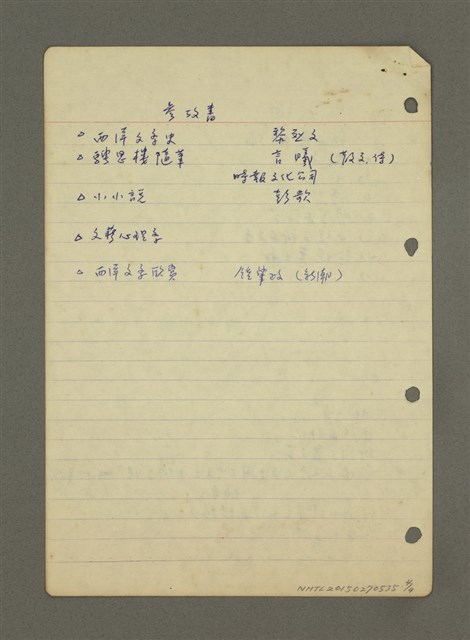 參攷書
△ 西洋文學史 黎烈文
△ 騁思樓隨筆 言曦 (散文、詩)
時報文化公司
△ 小小說 彭歌
△ 文藝心理學
△ 西洋文學欣賞 鍾肇政 (新潮)
NMTL20150270535